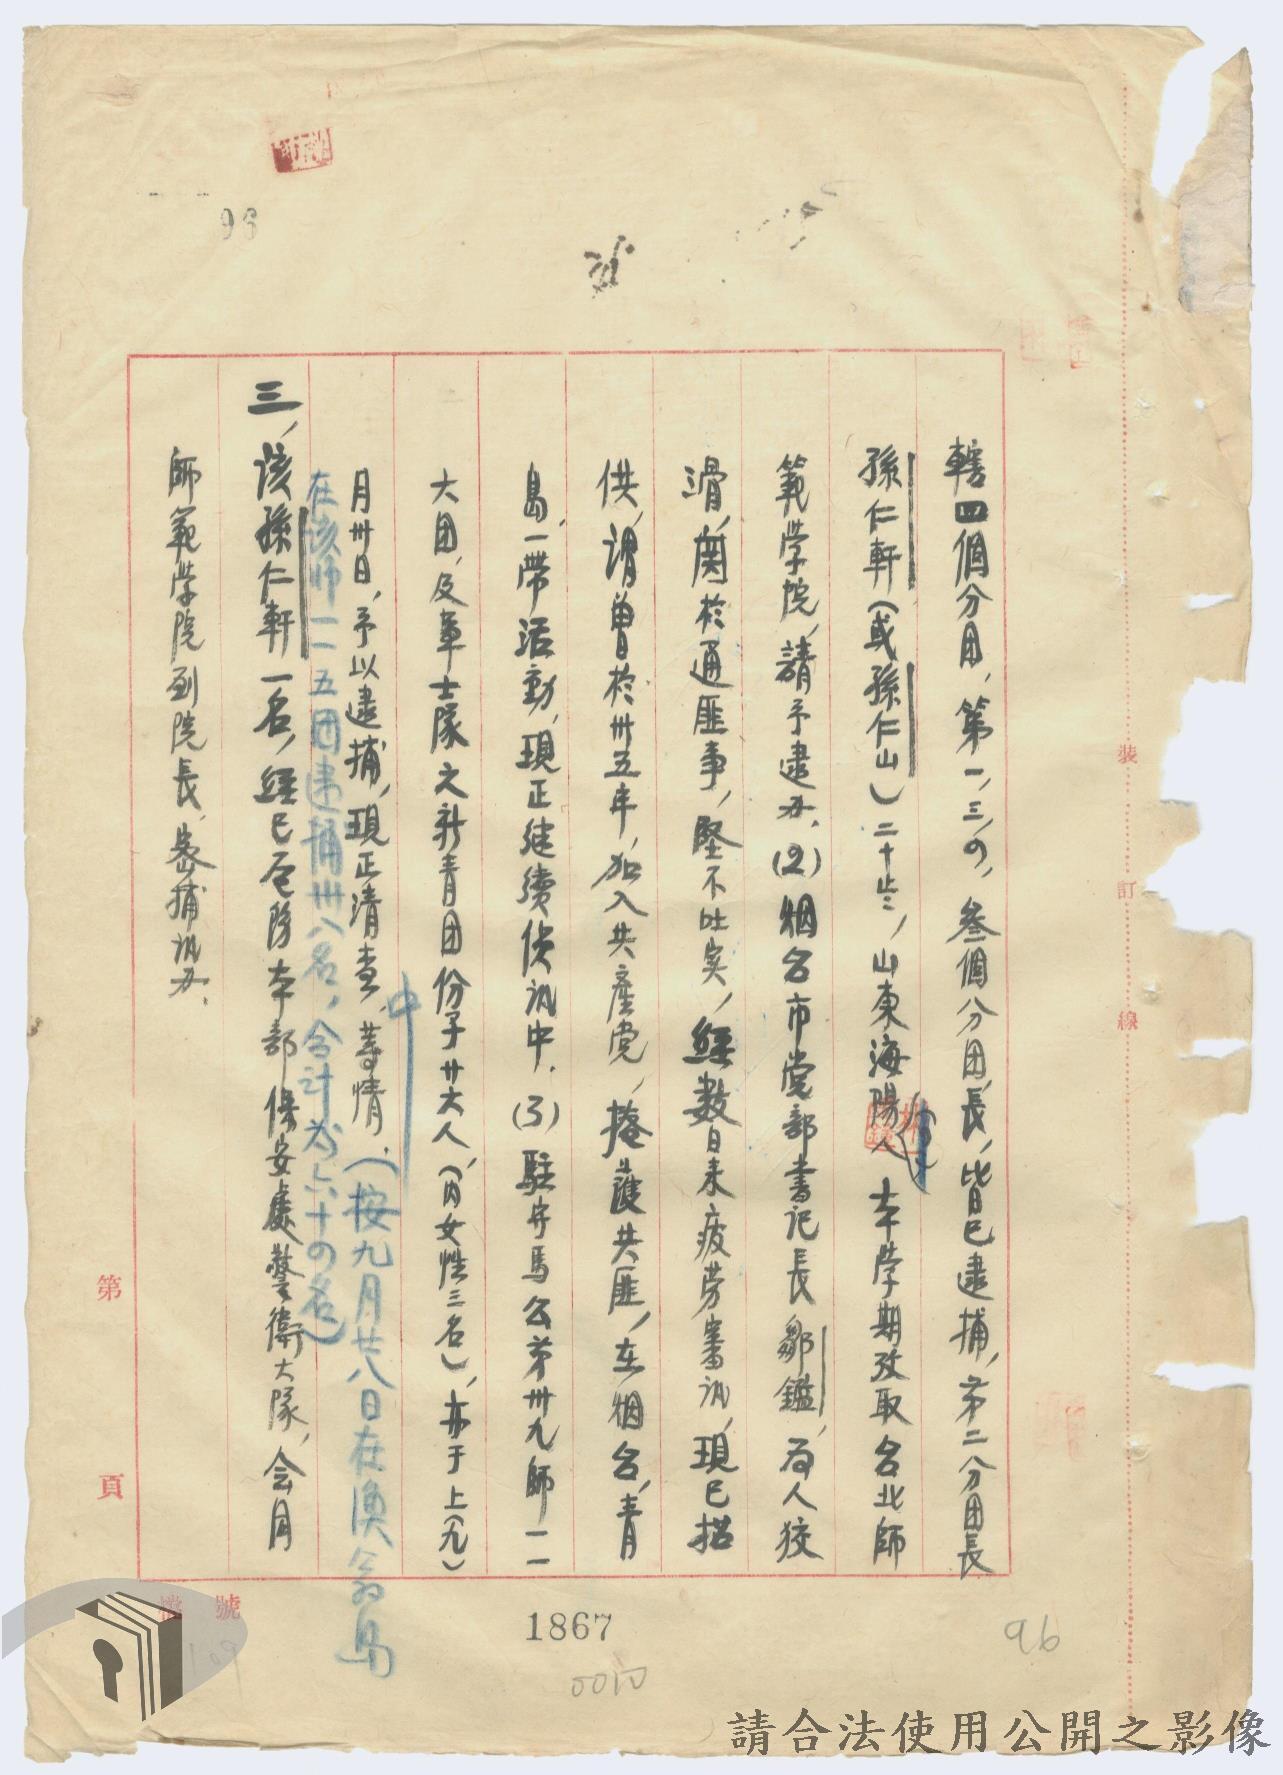 轄四個分团，第一，三，四，叁個分团長，皆已逮捕，第二分团長
孫仁軒（或孫仁山）二十歲，山東海陽人，本學期攷取台北師
範学院，請予逮办，(2)烟台市党部書记長鄒鑑，為人狡
滑，関於通匪事，堅不吐实，經數日来疲劳審訊，現已招
供，謂曾於卅五年，加入共產党，掩護共匪，在烟台，青
島，一帶活動，現正継續侦訊中，(3)駐守馬公第卅九師一一
大团，及軍士隊之新青团份子廿六人，（内女性三名），亦于上（九）
月卅日，予以逮捕，現正清查中，等情，（按九月廿八日在漁翁島
在該师一一五团逮捕卅八名，合計为六十四名）
三，該孫仁軒一名，經已飭本部保安處警衛大隊，会同
師範学院刘院長，密捕訊办，
96
1867
0010
96
109
裝
訂
線
第
頁
檔
號
請合法使用公開之影像